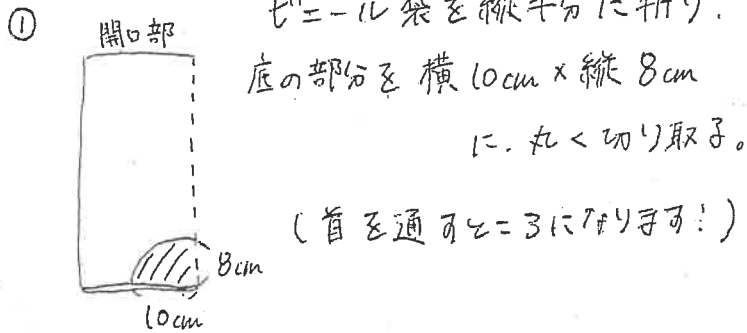 ①
開口部
ビニール袋を縦半分に折り、
底の部分を横10cm×縦8cm
に、丸く切り取る。
(首を通すところになります!)
8cm
10cm